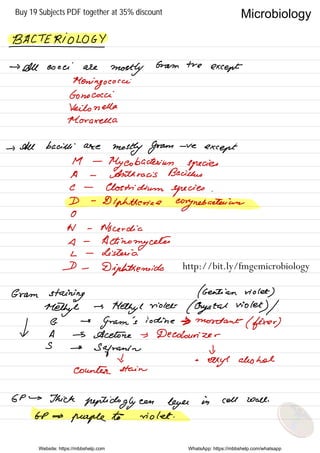 Buy 19 Subjects PDF together at 35% discount
Microbiology
BACTERIOLOGY
→ All cocci are mostly Gram +ve except
Meningococci
Gonococci
Veilonella
Moraxella
→ All bacilli are mostly gram -ve except
M — Mycobacterium species
A — Anthracis Bacillus
C — Clostridium species.
D — Diphtheriae corynebacterium
O
N — Nocardia
A — Actinomycetes
L — Listeria
D — Diphtheroids
http://bit.ly/fmgemicrobiology
Gram staining (Gentian violet)
Methyl → Methyl violet (Crystal violet)/
G → Gram's iodine → mordant (fixer)
A → Acetone → Decolourizer
S → Safranin
↓ ↓
Counter stain • ethyl alcohol
GP → Thick peptidoglycan layer in cell wall.
GP → purple to violet.
Website: https://mbbshelp.com
WhatsApp: https://mbbshelp.com/whatsapp